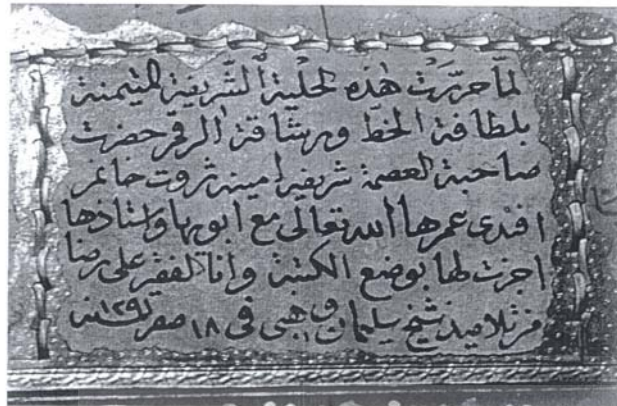 لمّا حرّرت هذه الحلية الشّريفة المتيمنة
بلطافة الخط ورشاقة الرقم حضرت
صاحبة العصمة شريفه امينه ثروت خانم
افندى عمرها الله تعالى مع ابويها واستاذها
اجزت لها بوضع الكتبة وانا الفقير على رضا
من تلاميذ شيخ سليمان وهبى فى ١٨ صفر سنه ١٢٩١